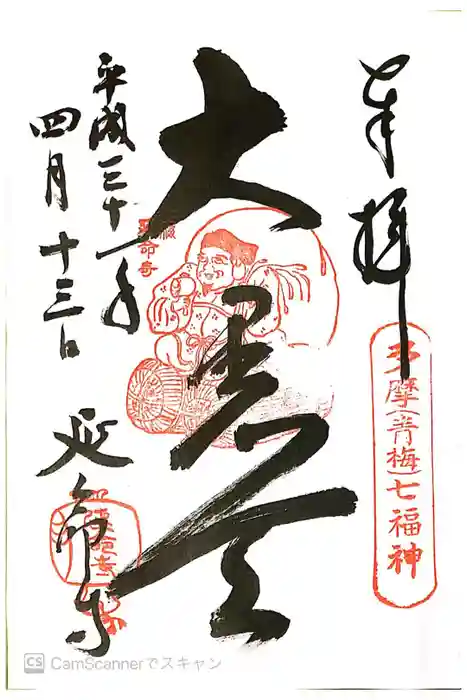 奉拝
多摩(青梅)七福神
大黒天
平成三十一年
四月十三日
延命寺
CS CamScannerでスキャン